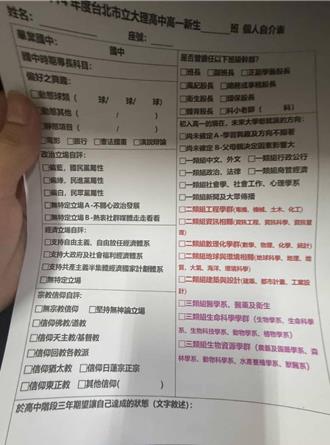 年度台北市立大理高中高一新生____班 個人自介表
姓名:
座號:
畢業國中: 國中
國中時期專長科目:
偏好之興趣:
□動態球類( 球/ 球/ 球)
□動態其他( / / )
□靜態項目( / / )
□電影 □旅行 □書法國畫 □演說辯論
政治立場自評:
□偏藍,國民黨屬性
□偏綠,民進黨屬性
□偏白,民眾黨屬性
□無特定立場 A-不關心政治發展
□無特定立場 B-熱衷社群媒體走走看看
經濟立場自評:
□支持自由主義、自由放任經濟體系
□支持大政府及社會福利經濟體系
□支持共產主義半集體經濟國家計劃體系
□無特定立場
宗教信仰自評:
□無宗教信仰 □堅持無神論立場
□信仰佛教/道教
□信仰天主教/基督教
□信仰回教各教派
□信仰猶太教 □信仰日蓮宗正宗
□信仰東正教 □其他信仰( )
是否曾擔任以下班級幹部?
□班長 □副班長 □正副學藝股長
□風紀股長 □總務或事務股長
□衛生股長 □環保股長
□體育股長 □科小老師( 科)
初入高一的現在,未來大學想就讀的方向:
□尚未確定 A-學習興趣及方向不顯著
□尚未確定 B-父母親決定因素影響大
□一類組中文、外文 □一類組行政公行
□一類組政治、法律 □一類組商管經濟
□一類組社會學、社會工作、心理學系
□一類組新聞及大眾傳播
□二類組工程學群(電機、機械、土木、化工)
□二類組資訊相關(資訊工程、資訊科學、資訊管理)
□二類組數理化學群(數學、物理、化學、統計)
□二類組地球與環境相關(地球科學、地理、地質、大氣、海洋、環境科學)
□二類組建築與設計(建築、都市計畫、工業設計)
□三類組醫學系、醫藥及衛生
□三類組生命科學學群(生物學系、生命科學系、生物科技學系、動物學系、植物學系)
□三類組生物資源學群(農藝及園藝學系、森林學系、動物科學系、水產養殖學系、獸醫系)
於高中階段三年期望讓自己達成的狀態(文字敘述):